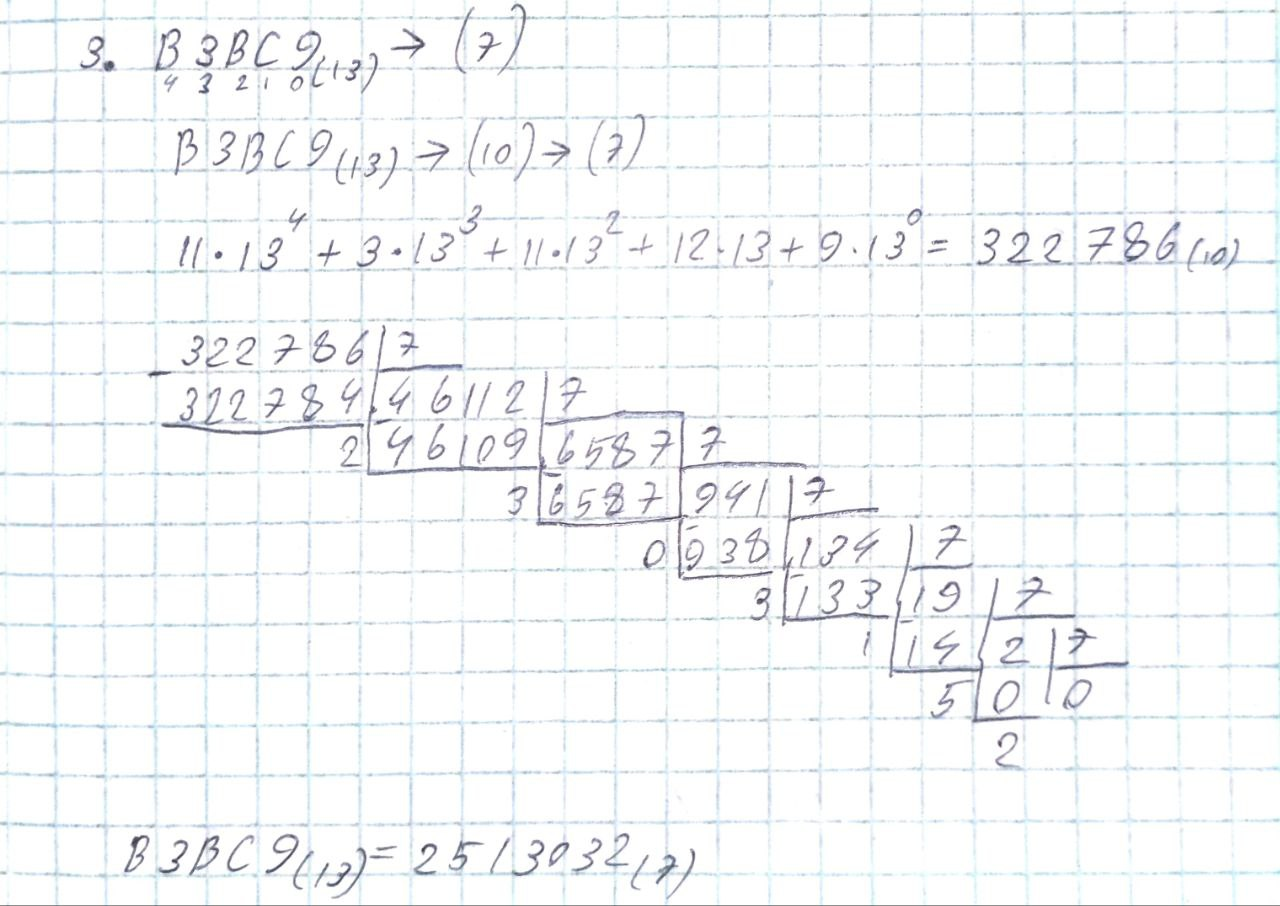 3. B3BC9(13) → (7)
4 3 2 1 0
B3BC9(13) → (10) → (7)
11·13⁴ + 3·13³ + 11·13² + 12·13 + 9·13⁰ = 322786(10)
322786 7
322784 46112 7
2 46109 6587 7
3 6587 941 7
0 938 134 7
3 133 19 7
1 14 2 7
5 0 0
2
B3BC9(13) = 2513032(7)